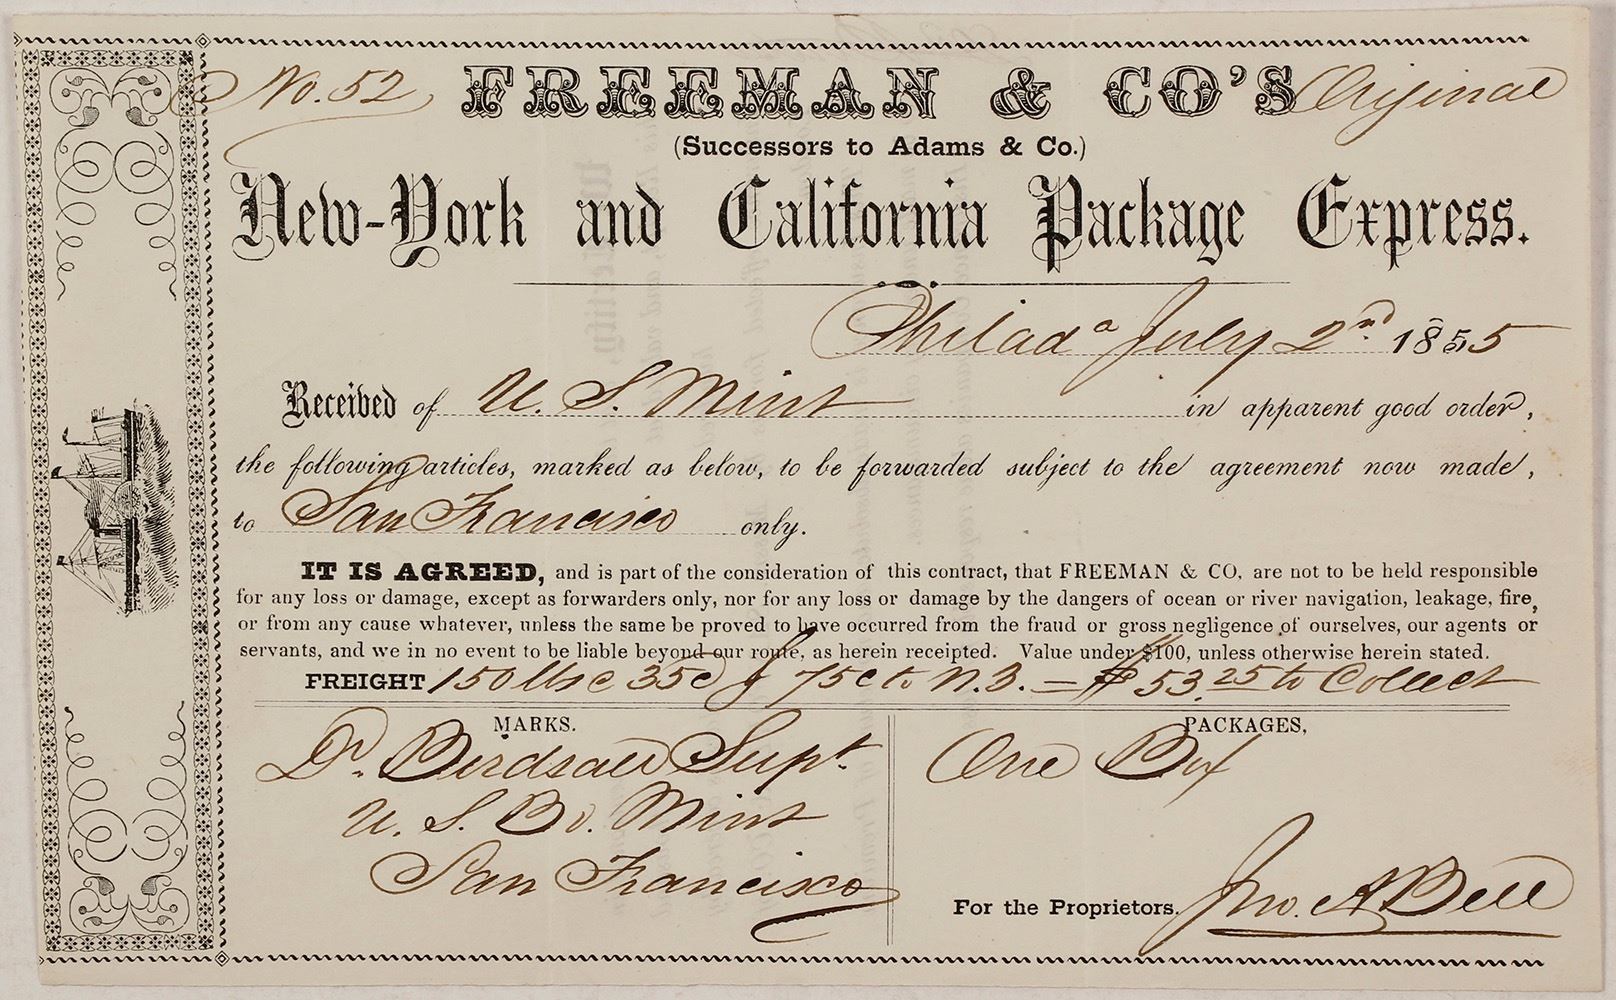 No. 52 FREEMAN & CO'S Original
(Successors to Adams & Co.)
New-York and California Package Express.
Philada July 2nd. 1855
Received of U. S. Mint in apparent good order,
the following articles, marked as below, to be forwarded subject to the agreement now made,
to San Francisco only.
IT IS AGREED, and is part of the consideration of this contract, that FREEMAN & CO. are not to be held responsible
for any loss or damage, except as forwarders only, nor for any loss or damage by the dangers of ocean or river navigation, leakage, fire,
or from any cause whatever, unless the same be proved to have occurred from the fraud or gross negligence of ourselves, our agents or
servants, and we in no event to be liable beyond our route, as herein receipted. Value under $100, unless otherwise herein stated.
FREIGHT 150 lbs c 35c 75c to N.B. = $53.25 to Collect
MARKS. PACKAGES,
Dr. Birdsall Supt. One Box
U. S. Br. Mint
San Francisco
For the Proprietors. Jno. A Bell